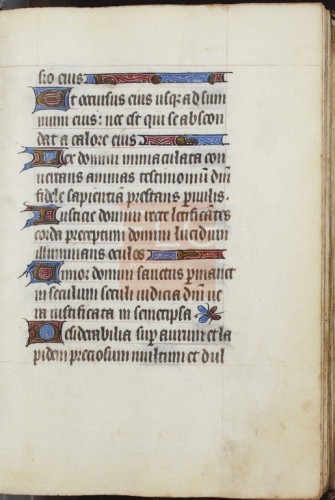 sio eius
Et occursus eius usq; ad sum
mum eius: nec est qui se abscon
dat a calore eius
Lex domini inmaculata con
uertens animas testimoniū dn̄i
fidele sapientiā prestans puulis.
Iusticie domini recte letificātes
corda preceptum domini lucidum
illuminans oculos
Timor domini sanctus pmanet
in seculum seculi iudicia dn̄i ue
ra iustificata in semetipsa.
Desiderabilia sup aurum et la
pidem preciosum multum et dul